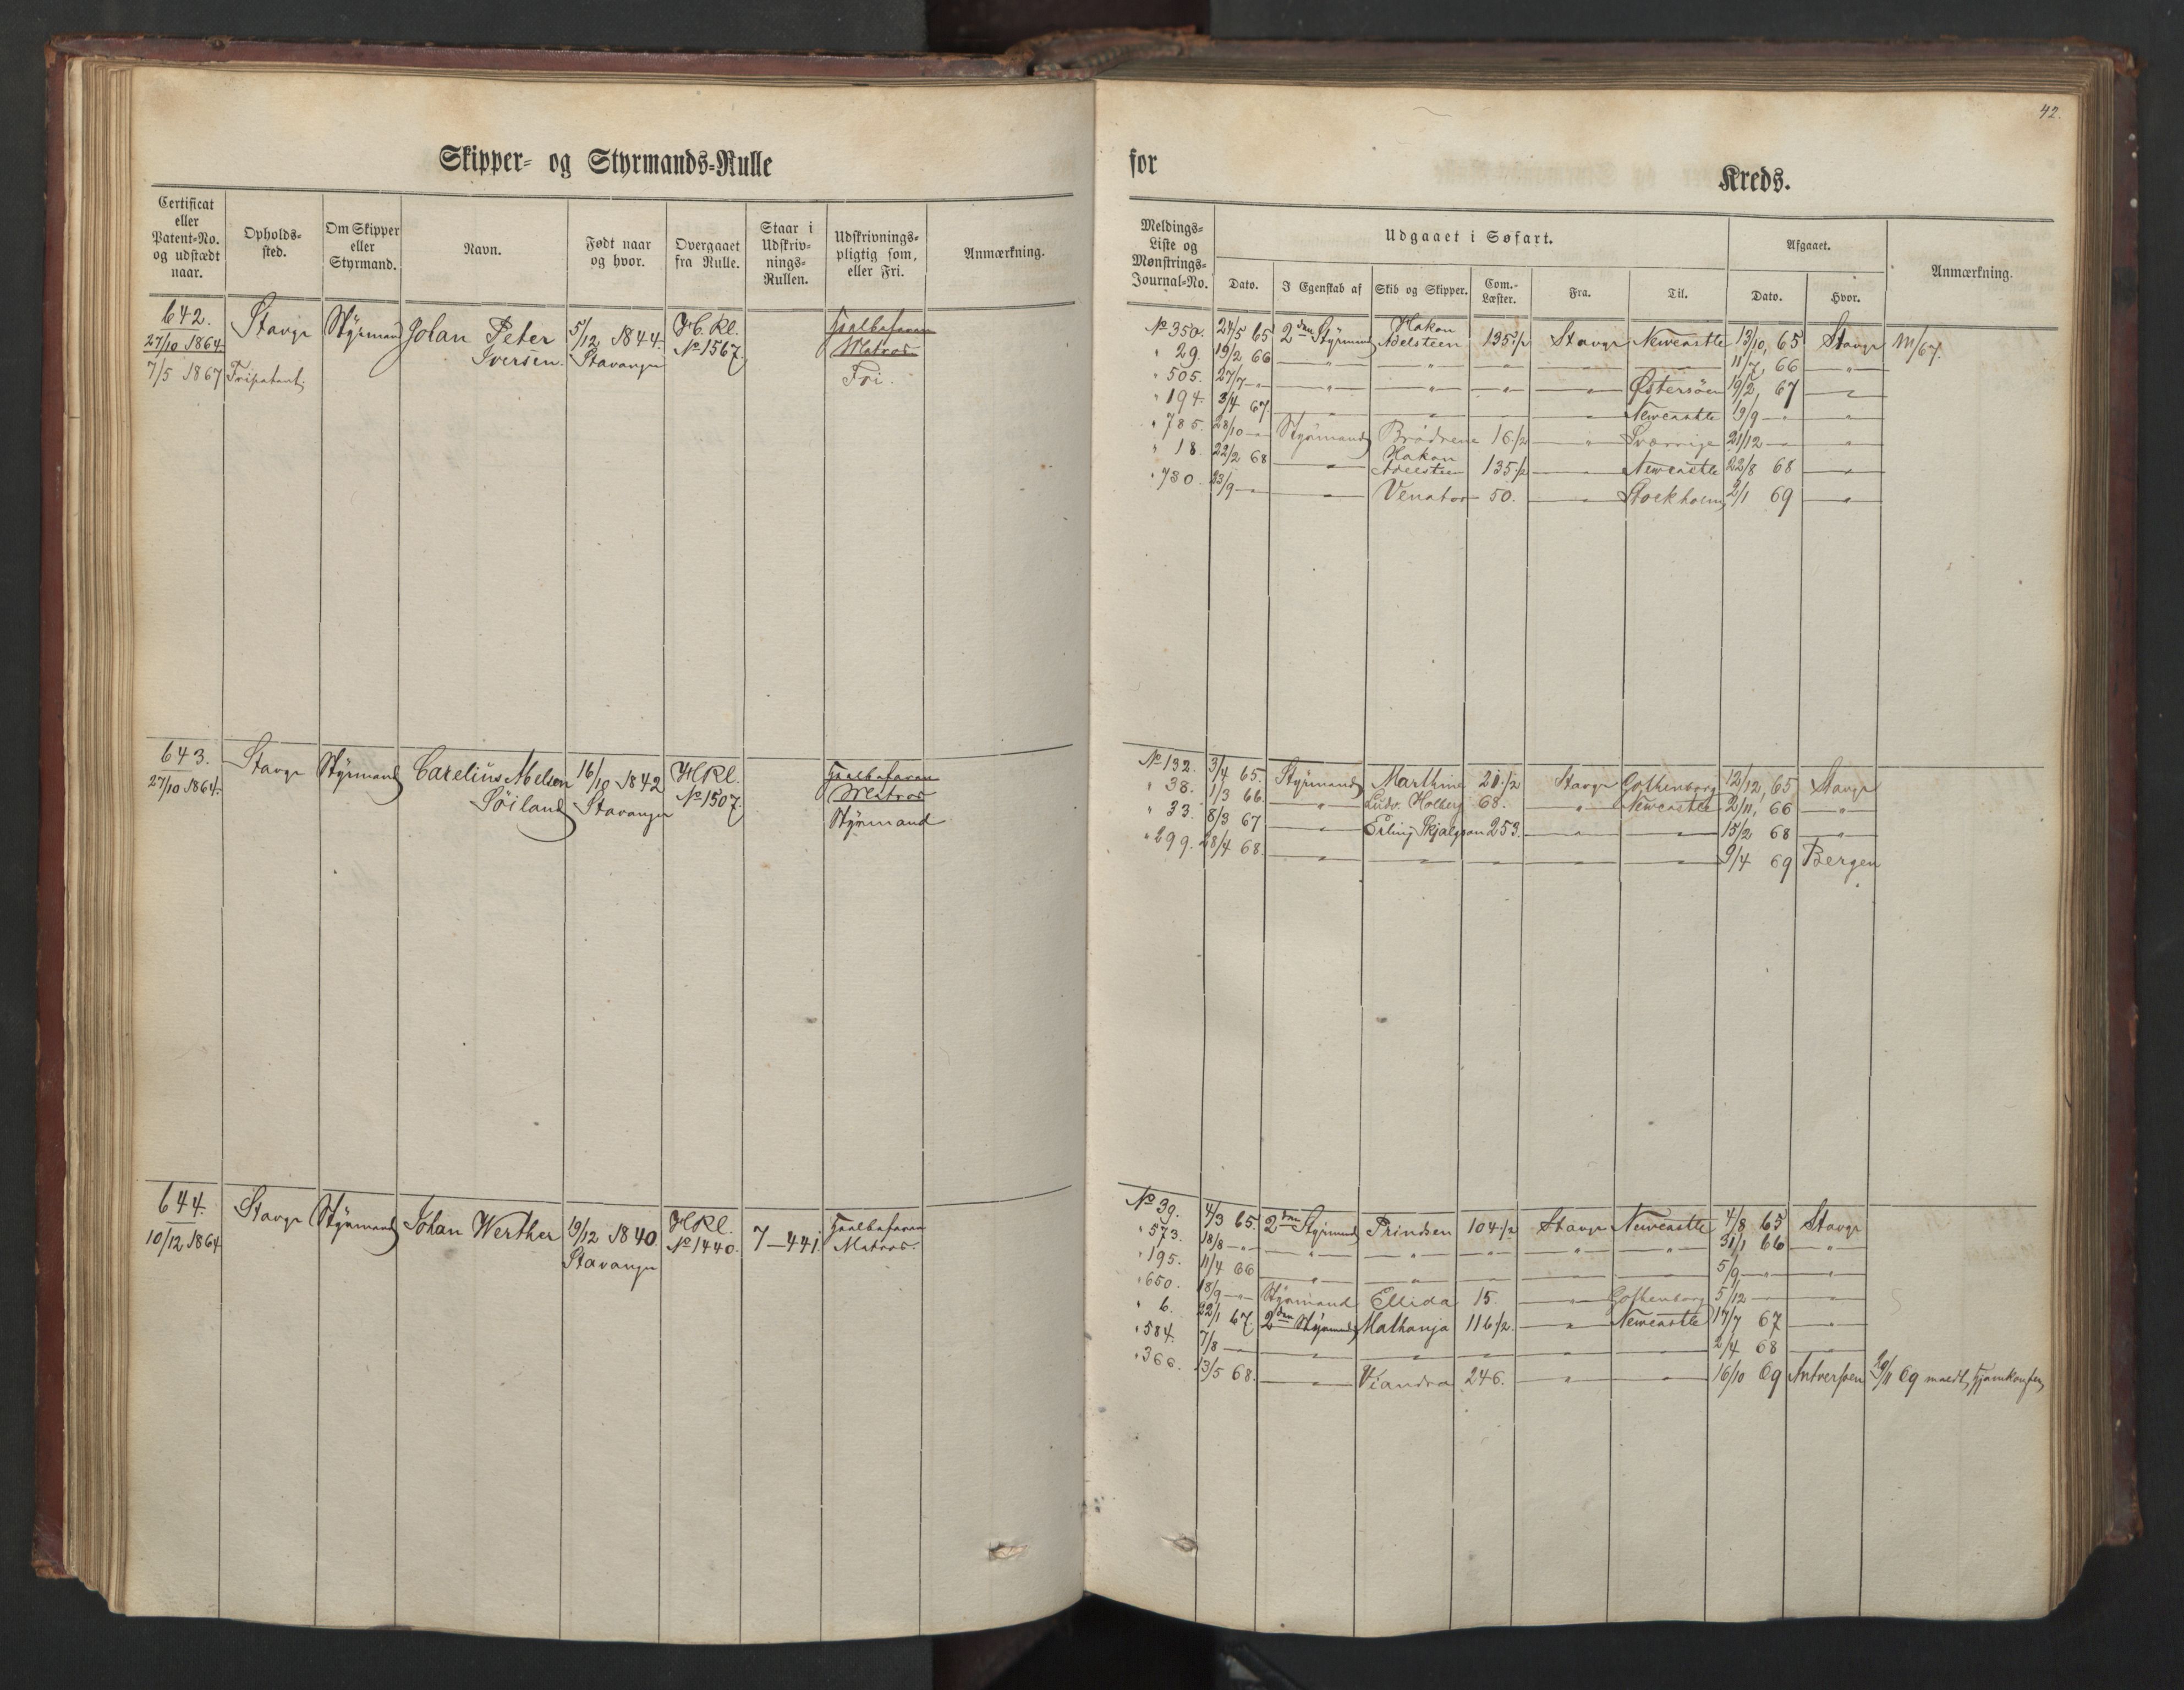 42.
Skipper- og Styrmands-Rulle
for
Kreds.
Certificat eller Patent-No. og udstædt naar.
Opholds-sted.
Om Skipper eller Styrmand.
Navn.
Født naar og hvor.
Overgaaet fra Rulle.
Staar i Udskriv-nings-Rullen.
Udskrivnings-pligtig som, eller Fri.
Anmærkning.
Meldings-Liste og Mønstrings-Journal-No.
Udgaaet i Søfart.
Dato.
I Egenskab af
Skib og Skipper.
Com.-Læster.
Fra.
Til.
Afgaaet.
Dato.
Hvor.
Anmærkning.
642. 27/10 1864. Stavgr Styrmand Johan Peter Iversen. 5/12 1844. Stavanger H.Rl. No 1567. Matros
7/5 1867 Fripatent. Fri.
No 350. 24/5 65 2den Styrmand Hakon Adelsteen 135 1/2 Stavgr Newcastle 13/10, 65 Stavgr M/67.
" 29. 19/2 66 — " — — " — — " — 11/7, 66 — " —
" 505. 27/7 — " — — " — — " — — " — — " — Østersøen 19/2, 67 — " —
" 194. 3/4 67. — " — — " — — " — — " — Newcastle 19/9 — " — "
" 785. 28/10 — " — Styrmand Brødrene 16 1/2 — " — Sverrige 21/12 — " — "
" 18. 22/2 68 — " — Hakon Adelsteen 135 1/2 — " — Newcastle 22/8 68 — " —
" 730. 23/9 — " — — " — Venator 50. — " — Stockholm 2/1 69 — " —
643. 27/10 1864. Stavgr Styrmand Carelius Abelsen Söiland 16/10 1842 Stavanger H.Rl. No 1507. Matros
Styrmand
No 132. 3/4 65. Styrmand Marthine 21 1/2 Stavgr Gothenborg 12/12, 65 Stavgr
" 38. 1/3 66. — " — Ludv. Holberg 68. " Newcastle 2/11, 66 — " —
" 33. 8/3 67 — " — Erling Skjalgson 253. — " — — " — 15/2 68 — " —
" 299. 28/4 68. — " — — " — — " — — " — — " — 9/4 69 Bergen
644. 10/12 1864 Stavgr Styrmand Johan Werther 19/12 1840. Stavanger H.Rl. No 1440. 7—441 Matros.
No 39. 4/3 65. 2den Styrmand Prindsen 104 1/2 Stavgr Newcastle 4/8 65 Stavgr
" 573. 18/8 — " — — " — — " — — " — — " — — " — 31/1 66 — " —
" 195. 11/4 66 — " — — " — — " — — " — — " — 5/9 — " — — " —
" 650. 18/9 — " — Styrmand Ellida 15. — " — Gothenborg 5/12 — " — — " —
" 6. 22/1 67. 2den Styrmand Mathanja 116 1/2. — " — Newcastle 17/7 67 — " —
" 584. 7/8 — " — — " — — " — — " — — " — — " — 2/4 68 — " —
" 366. 13/5 68. — " — Viandra 246. — " — — " — 16/10 69 Antverpen 29/11 69 meldt hjemkommen